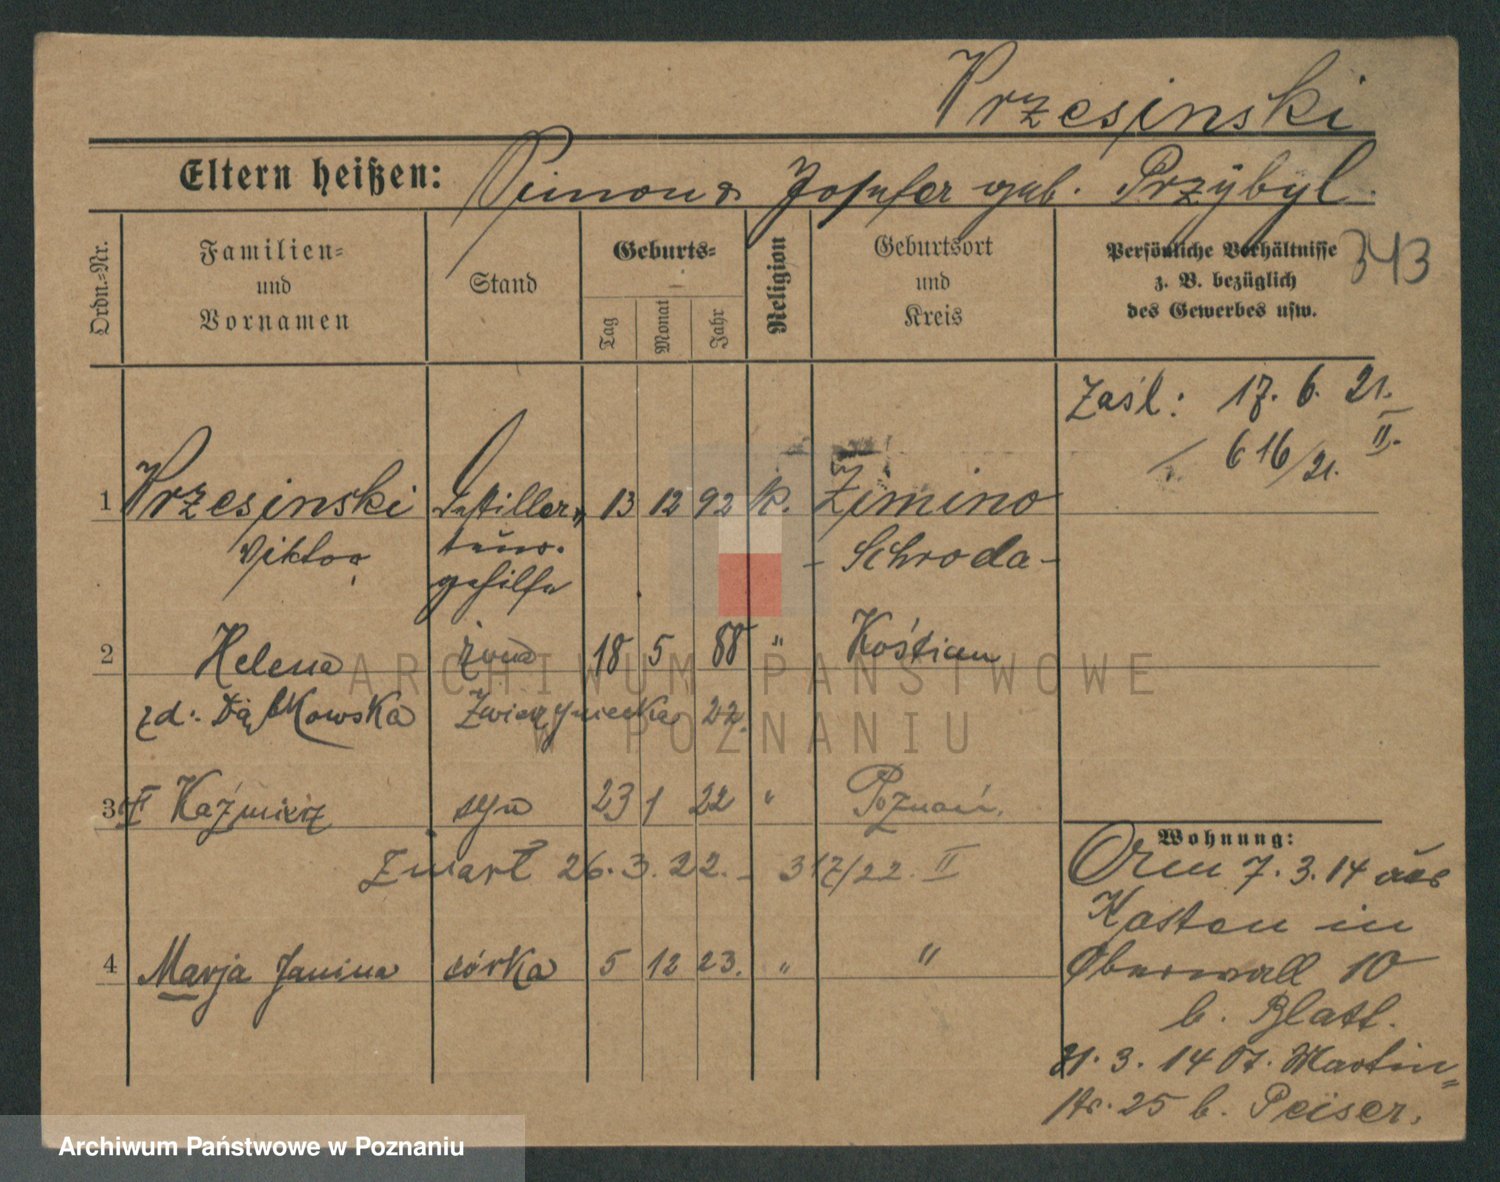 Wrzesinski
Eltern heißen: Simon & Josefa geb. Przybyl.
Ordn.-Nr.
Familien-
und
Vornamen
Stand
Geburts-
Tag
Monat
Jahr
Religion
Geburtsort
und
Kreis
Persönliche Verhältnisse
z. B. bezüglich
des Gewerbes usw.
343
Zaśl: 17. 6. 21.
616/21. II.
1 Wrzesinski Destillat 13 12 92 k. Zimino
Viktor
gehilfe
- Schroda -
2 Helena żona 18 5 88 " Kościan
zd: Dątkowska Zwierzyniecka 22.
3 Kaźmierz syn 23 1 22 " Poznań.
Zmarł 26. 3. 22. - 317/22. II
4 Marja Janina córka 5 12 23. " "
Wohnung:
7. 3. 14 aus
Kosten in
Oberwall 10
b. Blatt.
31. 3. 14 St. Martin-
str. 25 b. Peiser.
ARCHIWUM PAŃSTWOWE
W POZNANIU
Archiwum Państwowe w Poznaniu